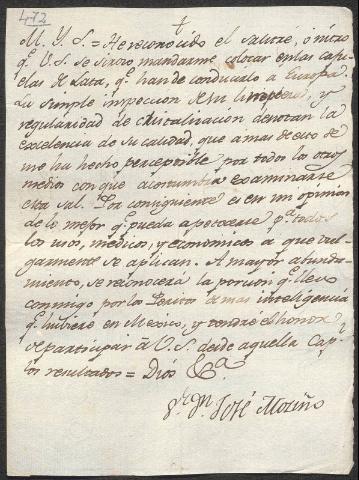 472
+
M. Y. S. = He reconocido el Salitre, ó nitro
q.e V. S. se sirvio mandarme colocar en las capsu-
las de Lata, q.e han de conducirlo a Europa.
La simple inspeccion de su limpieza, y
regularidad de cristalizacion denotan la
excelencia de su calidad, que a mas de esto se
me ha hecho perceptible por todos los otros
medios con que acostumbra examinarse
esta sal. Por consiguiente es en mi opinion
de lo mejor q.e pueda apetecerse p.a todos
los usos, medicos, y economicos a que vul-
garmente se aplican. A mayor abunda-
miento, se reconocerá la porcion q.e llevo
conmigo por los Peritos de mas inteligencia
q.e hubiere en Mexico, y tendré el honor
de participar á V. S. desde aquella Cap.l
los resultados = Dios &.a
D.n José Moziño